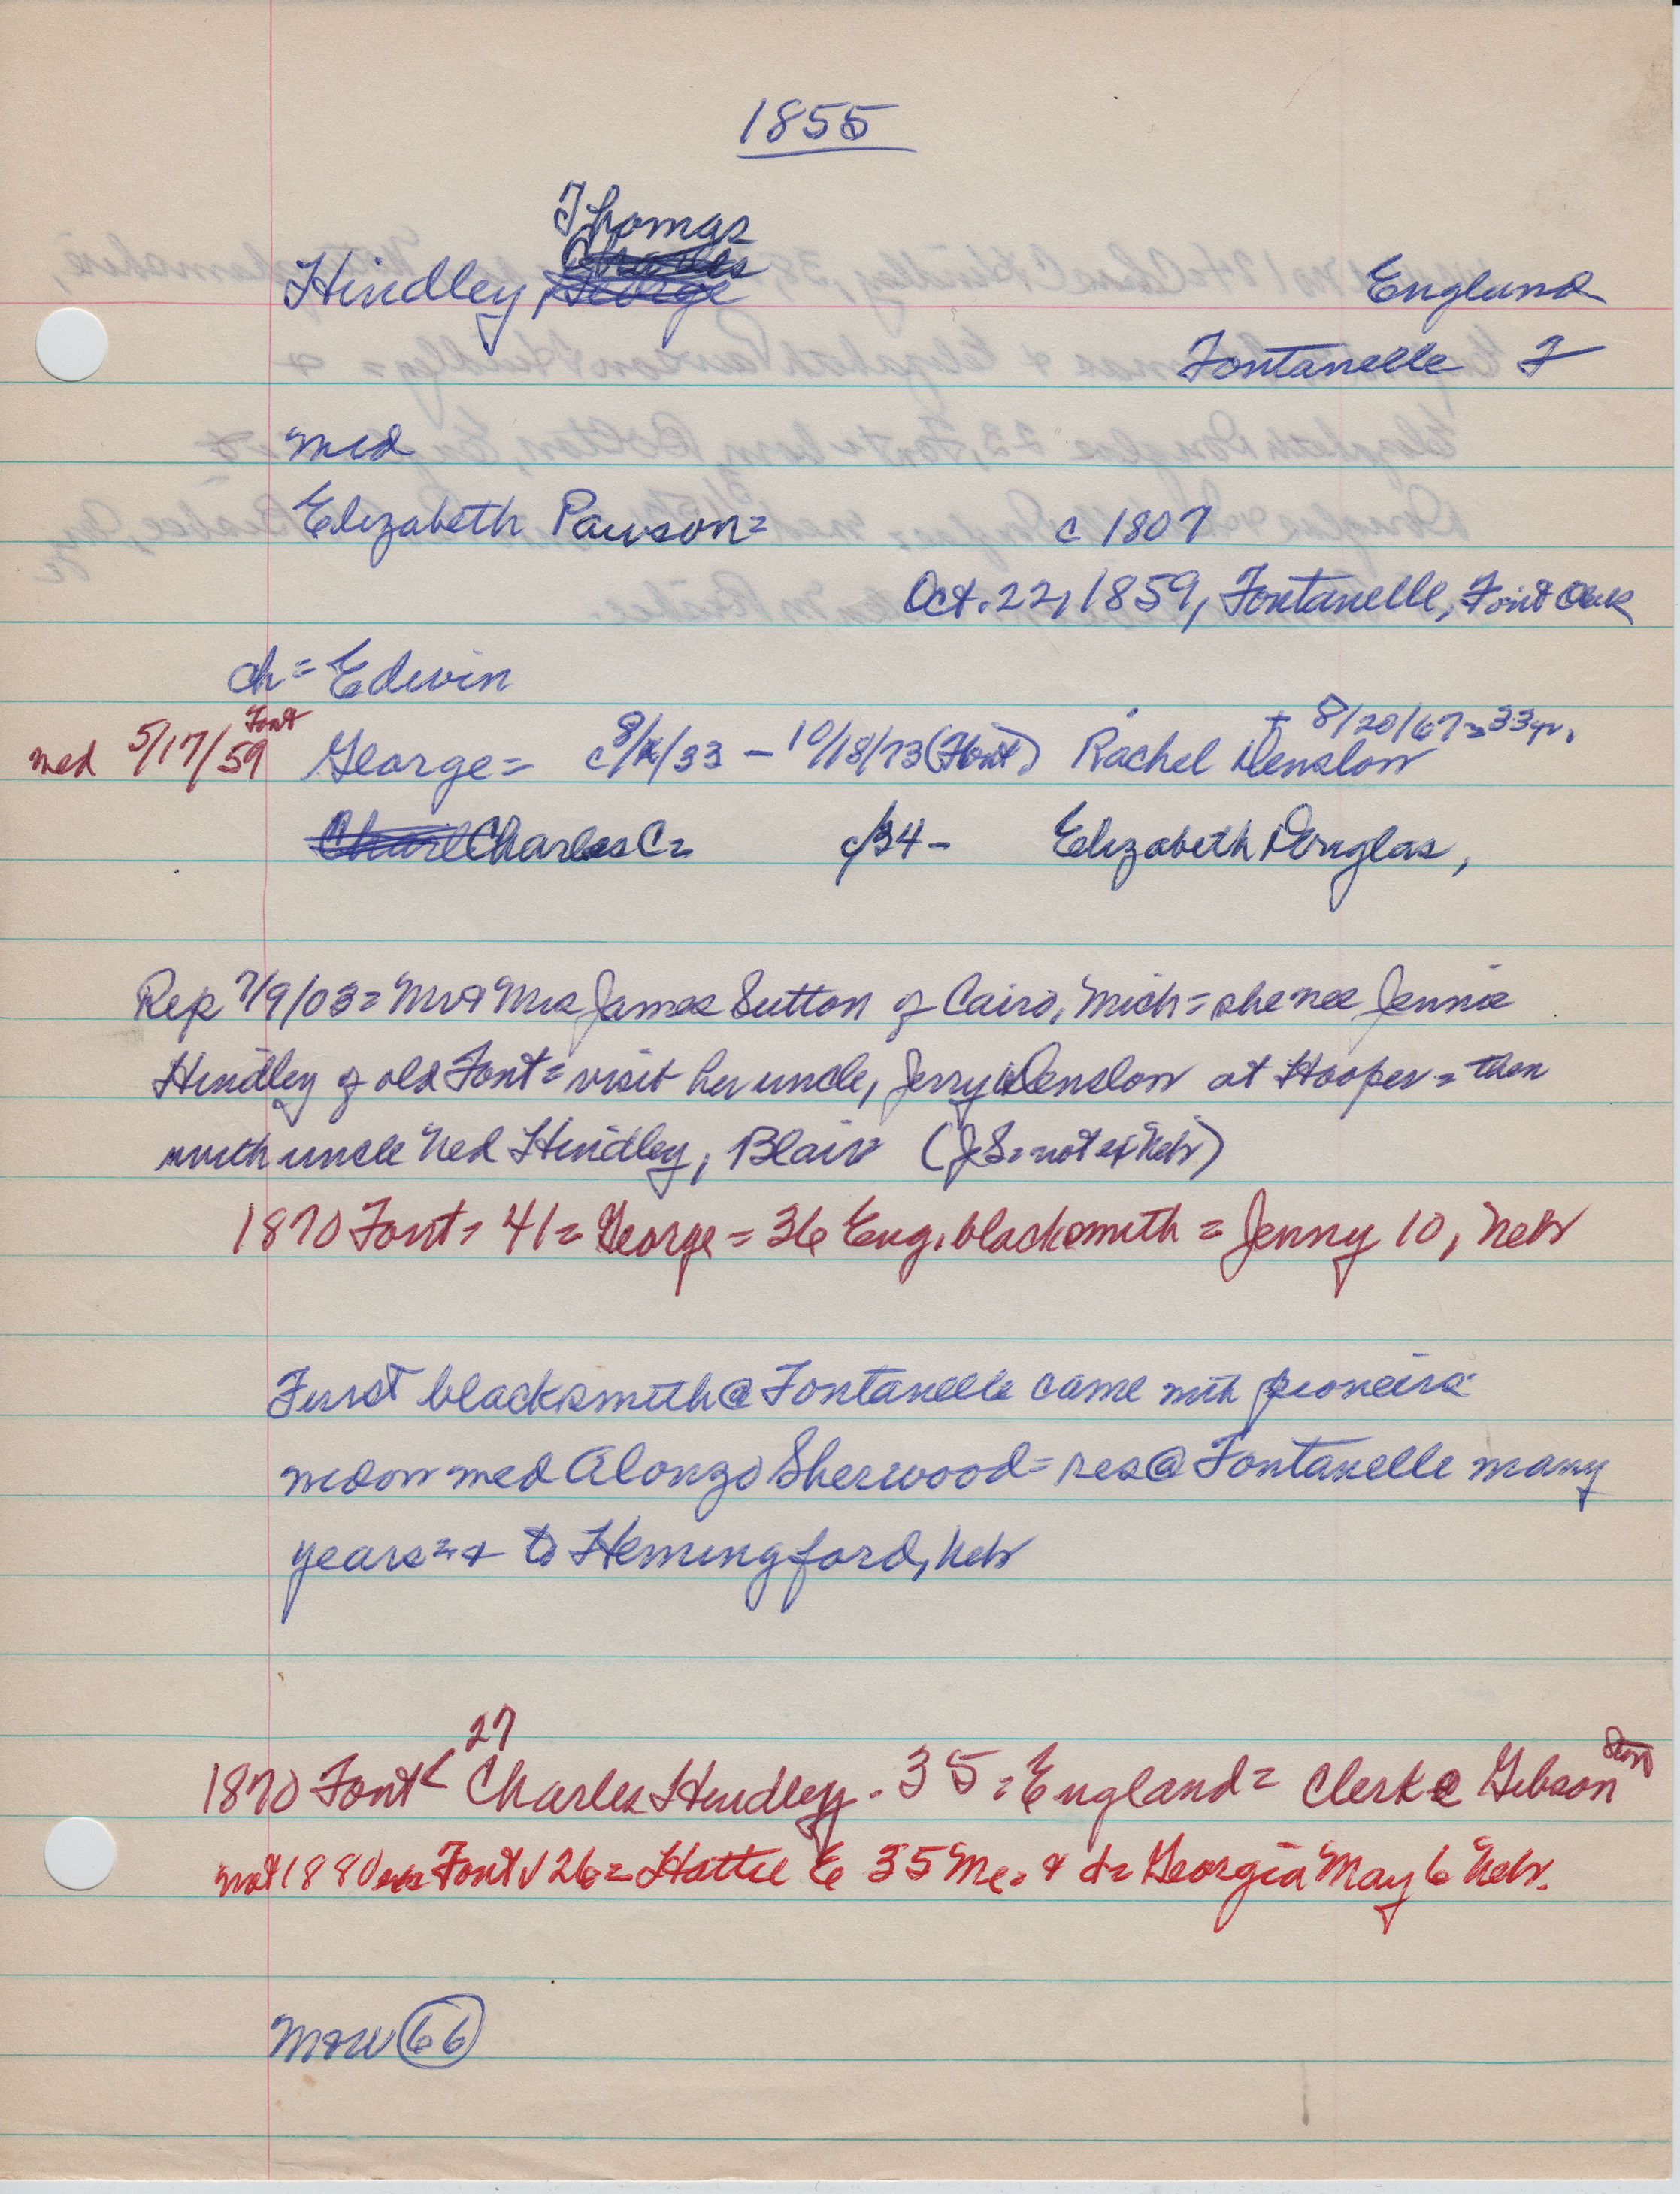 1855
Thomas
Charles
Hindley, George England
Fontanelle F
med
Elizabeth Pawson = c 1807
Oct. 22, 1859, Fontanelle, Font
ch = Edwin
med 5/17/59 Font George = c 8/ /33 – 10/18/73 (Font) Rachel Denslow + 8/20/67 = 33 yr.
Charl Charles C = c/34 – Elizabeth Douglas,
Rep 7/9/03 = Mr & Mrs James Sutton of Cairo, Mich = she nee Jennie
Hindley of old Font = visit her uncle, Jerry Denslow at Hooper = then
with uncle Ned Hindley, Blair (JS = not Nebr)
1870 Font = 41 = George = 36 Eng. blacksmith = Jenny 10, Nebr
First blacksmith @ Fontanelle came with pioneers
widow med Alonzo Sherwood = res @ Fontanelle many
years = + to Hemingford, Nebr
27
1870 Font Charles Hindley - 35 = England = Clerk @ Gibson Store
not 1880 Font 126 = Hattie E 35 Me. & d = Georgia May 6 Nebr.
M&W 66